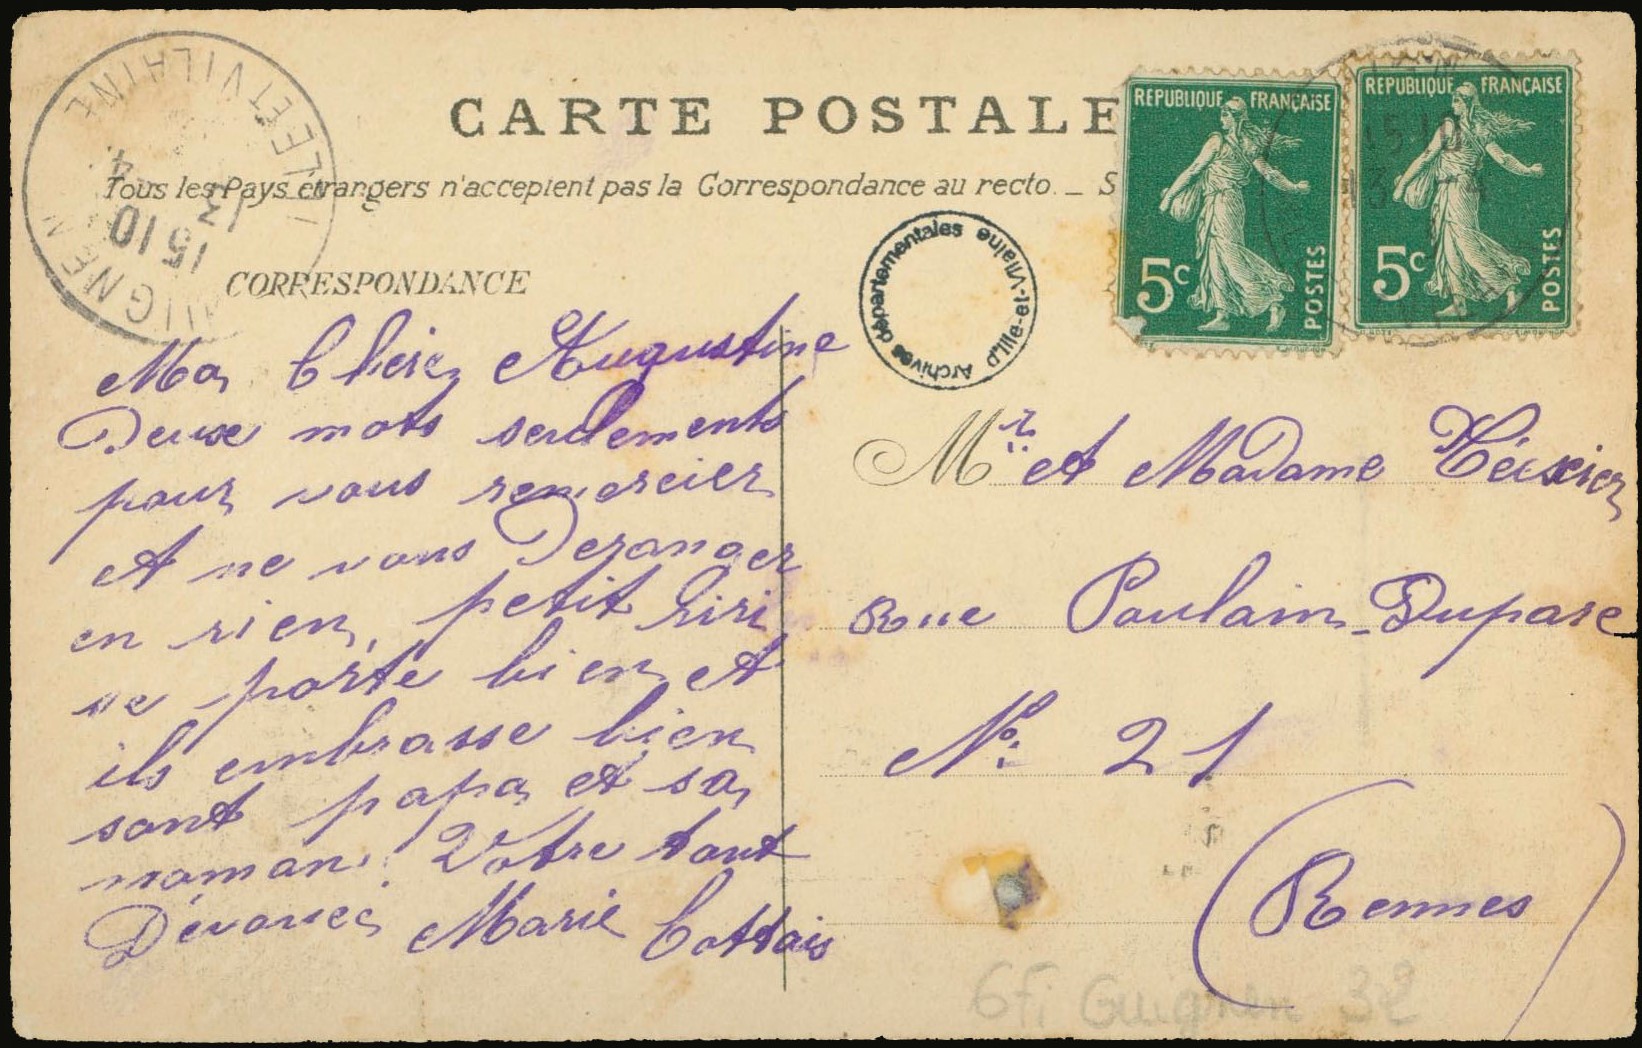 CARTE POSTALE
Tous les Pays etrangers n'acceptent pas la Correspondance au recto. _ S
CORRESPONDANCE
ILLE ET VILAINE
15 10
13 4
GUIGNEN
REPUBLIQUE FRANÇAISE
5c
POSTES
REPUBLIQUE FRANÇAISE
15 10
5c
POSTES
Archives départementales d'Ille-et-Vilaine
Ma Chère Augustine
Deux mots seulements
pour vous remercier
et ne vous Deranger
en rien, petit Riri
se porte bien et
ils embrasse bien
sont papa et sa
maman. Votre tout
Dévouée Marie Cottais
Mr. et Madame Téixier
Rue Poulain-Duparc
No. 21
(Rennes)
6Fi Guignen 32